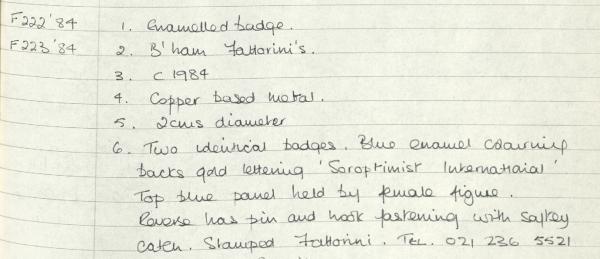 F222'84 1. Enamelled badge.
F223'84 2. B'ham Fattorini's.
3. c 1984
4. Copper based metal.
5. 2cms diameter
6. Two identical badges. Blue enamel colouring
backs gold lettering 'Soroptimist International'
Top blue panel held by female figure.
Reverse has pin and hook fastening with safety
catch. Stamped Fattorini. TEL. 021 236 5521